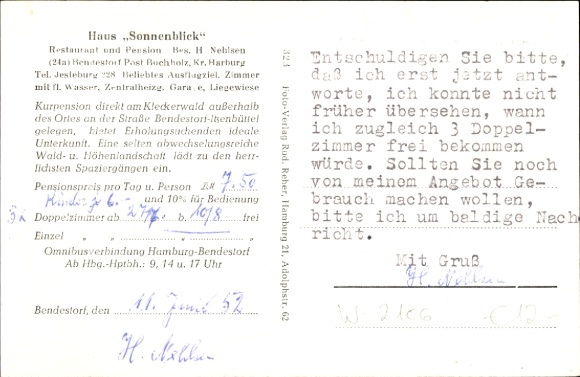 Haus „Sonnenblick"
Restaurant und Pension Bes. H Nehlsen
(24a) Bendestorf Post Buchholz, Kr. Harburg
Tel. Jesteburg 228 Beliebtes Ausflugziel. Zimmer
mit fl. Wasser, Zentralheizg. Garage, Liegewiese
Kurpension direkt am Kleckerwald außerhalb
des Ortes an der Straße Bendestorf-Itzenbüttel
gelegen, bietet Erholungsuchenden ideale
Unterkunft. Eine selten abwechselungsreiche
Wald- u. Höhenlandschaft lädt zu den herr-
lichsten Spaziergängen ein.
Pensionspreis pro Tag u. Person DM 7.50
Kinder 6.- und 10% für Bedienung
3x Doppelzimmer ab 27/7 b. 10/8 frei
Einzel " " " "
Omnibusverbindung Hamburg-Bendestorf
Ab Hbg.-Hptbh.: 9, 14 u. 17 Uhr
Bendestorf, den 11. Juni 52
H. Nehlsen
323 Foto-Verlag Rud. Reher, Hamburg 21, Adolphstr. 62
Entschuldigen Sie bitte,
daß ich erst jetzt ant-
worte, ich konnte nicht
früher übersehen, wann
ich zugleich 3 Doppel-
zimmer frei bekommen
würde. Sollten Sie noch
von meinem Angebot Ge-
brauch machen wollen,
bitte ich um baldige Nach
richt.
Mit Gruß
H. Nehlsen
W- 2106 -C12-